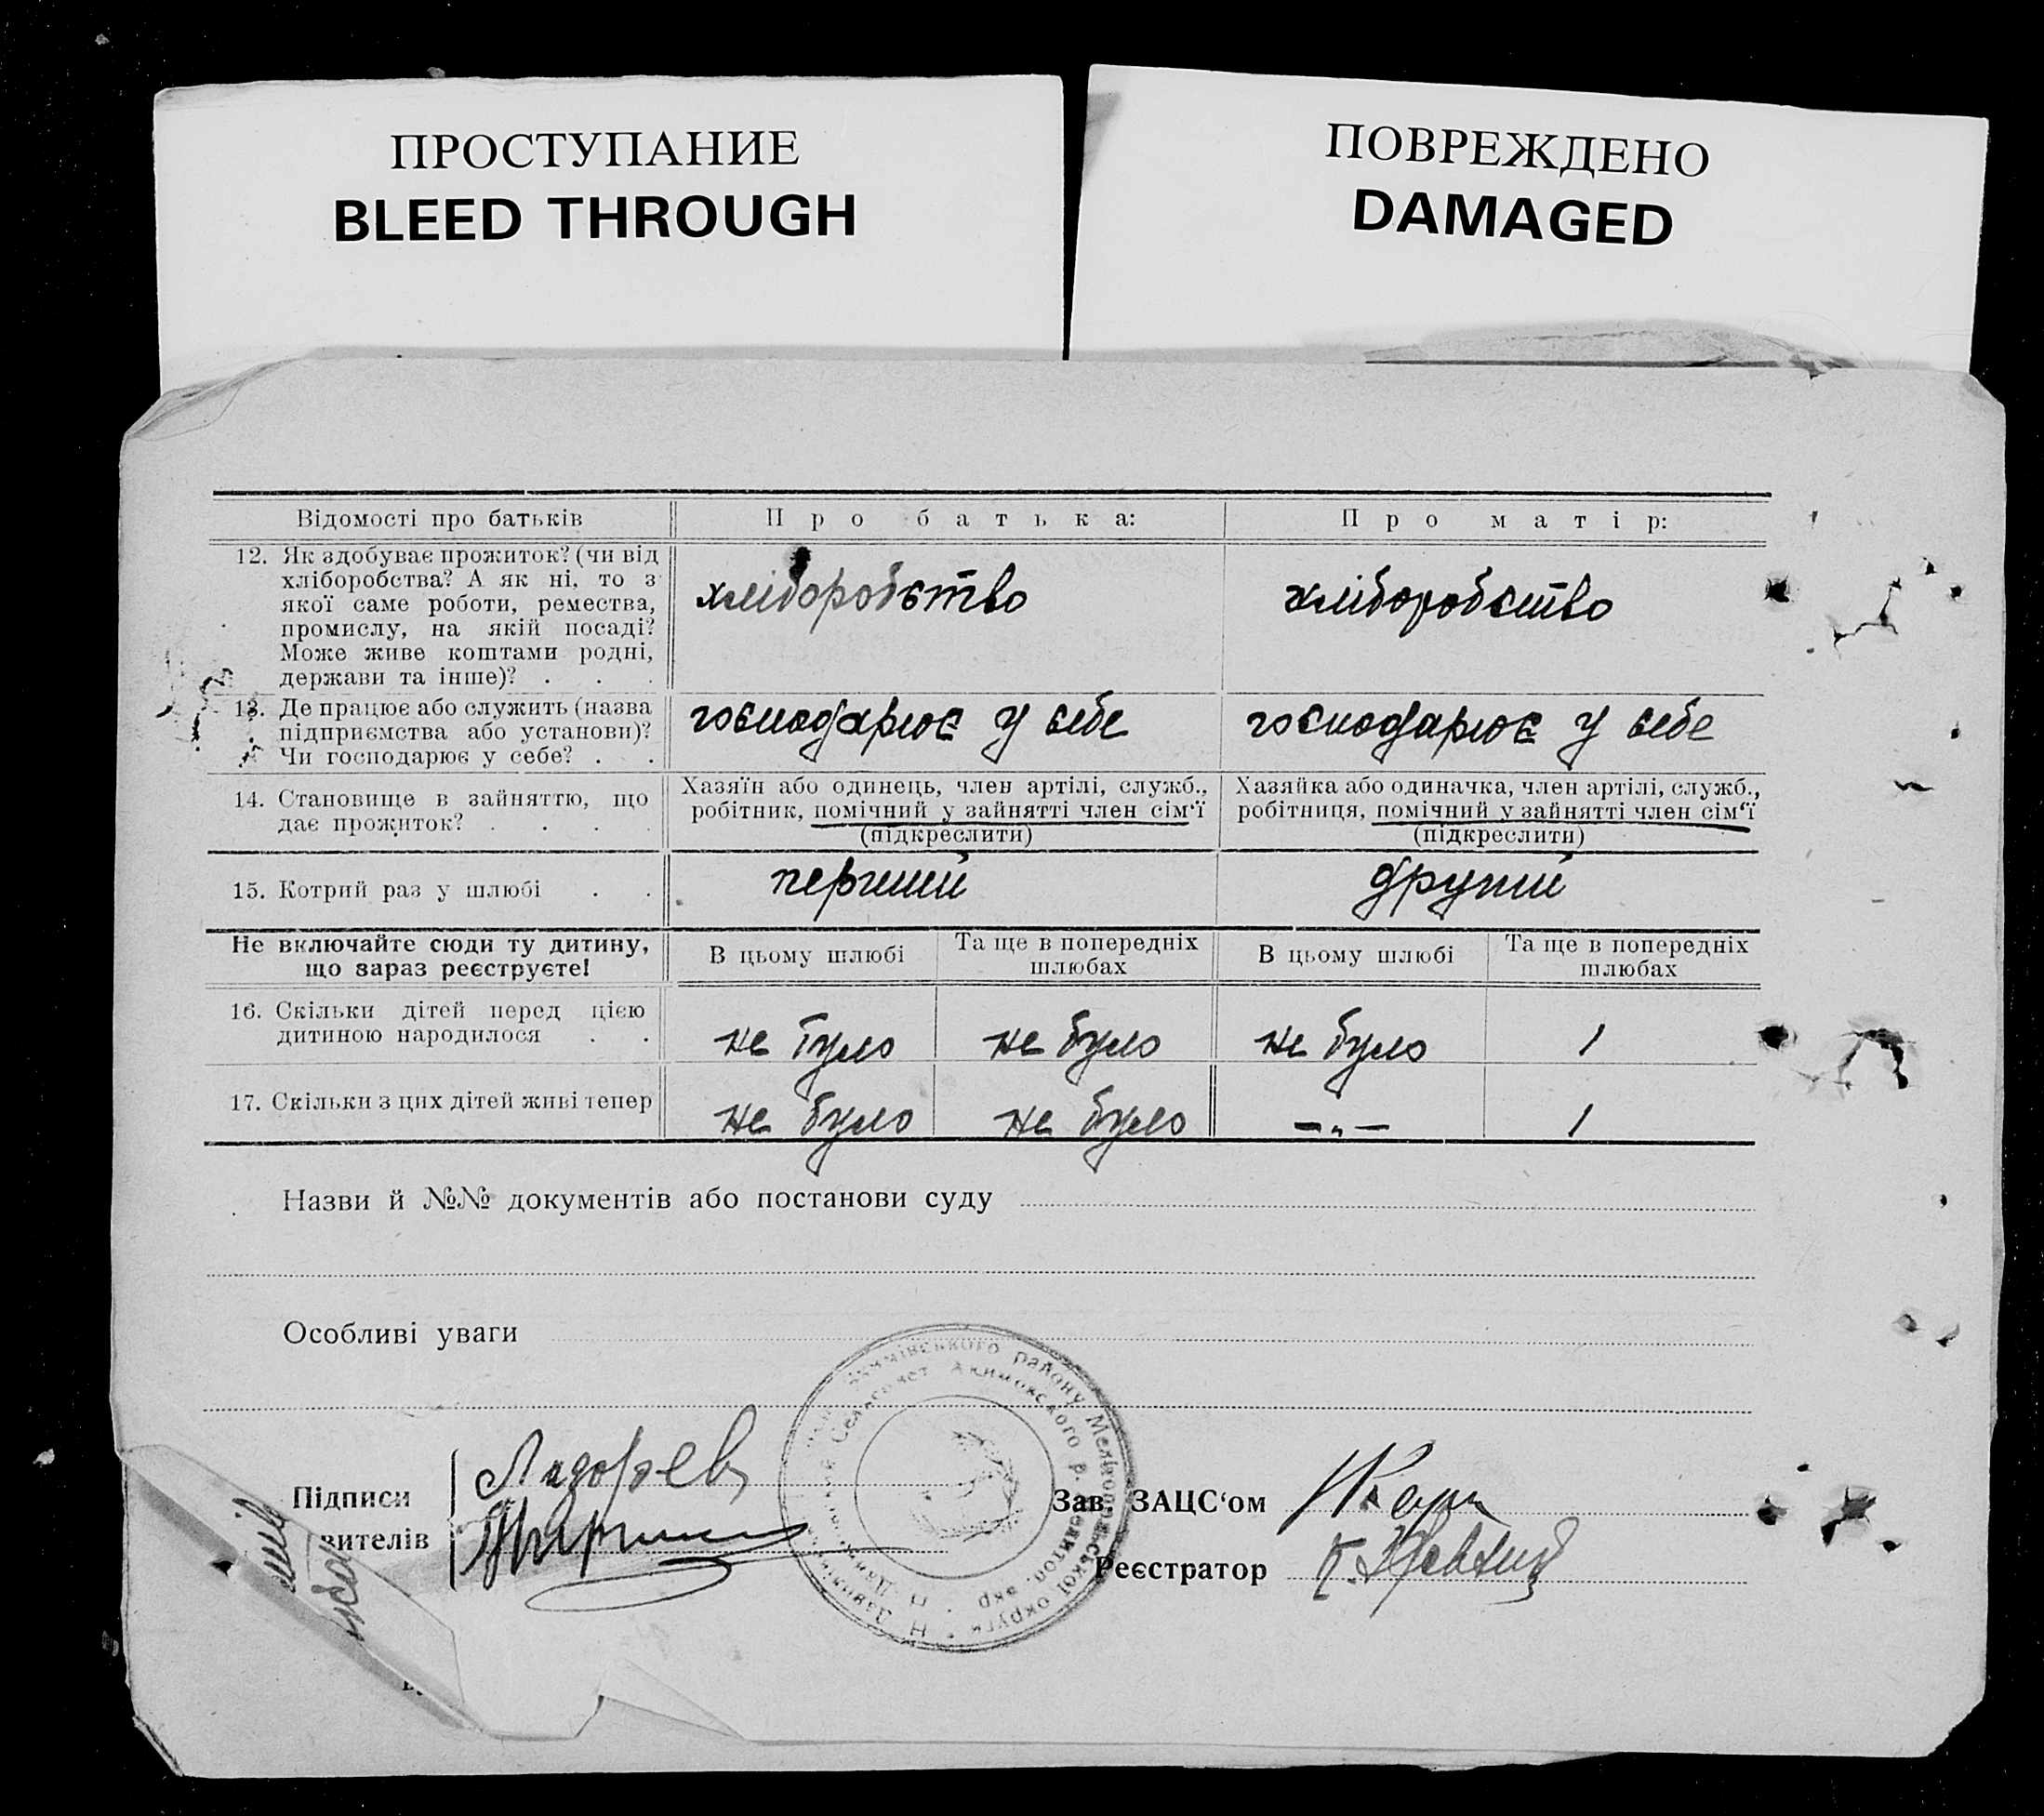 ПРОСТУПАНИЕ
BLEED THROUGH
ПОВРЕЖДЕНО
DAMAGED
Відомості про батьків
Про батька:
Про матір:
12. Як здобуває прожиток? (чи від
хліборобства? А як ні, то з
якої саме роботи, ремества,
промислу, на якій посаді?
Може живе коштами родні,
держави та інше)? . . .
хліборобство
хліборобство
13. Де працює або служить (назва
підприємства або установи)?
Чи господарює у себе? . .
господарює у себе
господарює у себе
14. Становище в зайняттю, що
дає прожиток? . . . .
Хазяїн або одинець, член артілі, служб.,
робітник, помічний у зайнятті член сім‘ї
(підкреслити)
Хазяйка або одиначка, член артілі, служб.,
робітниця, помічний у зайнятті член сім‘ї
(підкреслити)
15. Котрий раз у шлюбі . .
перший
другий
Не включайте сюди ту дитину,
що зараз реєструєте!
В цьому шлюбі
Та ще в попередніх
шлюбах
В цьому шлюбі
Та ще в попередніх
шлюбах
16. Скільки дітей перед цією
дитиною народилося . .
не було
не було
не було
1
17. Скільки з цих дітей живі тепер
не було
не було
—„—
1
Назви й №№ документів або постанови суду
Особливі уваги
району Меліт
Акимовского р.
округи
Підписи
вителів
Зав. ЗАЦС‘ом
Реєстратор